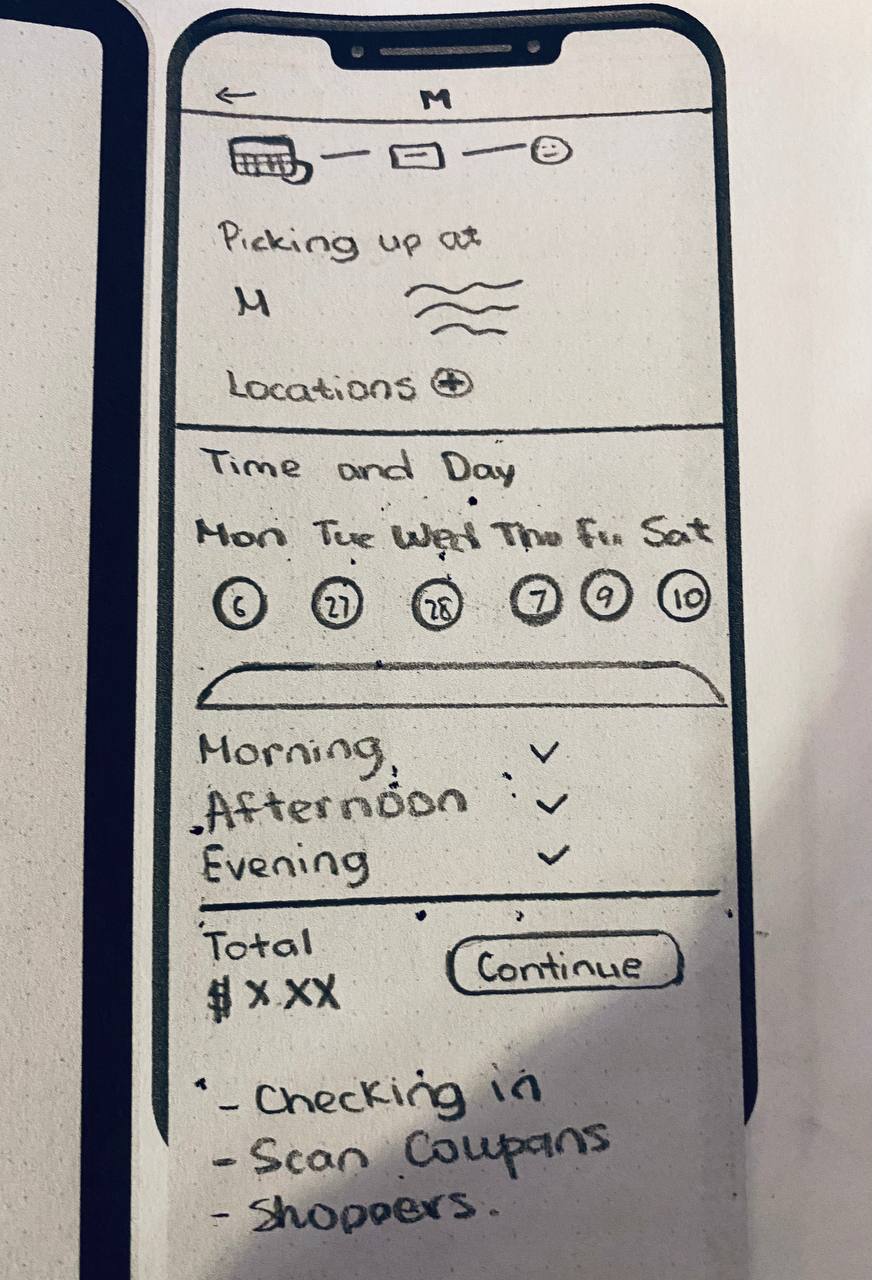 M
Picking up at
M
Locations
Time and Day
Mon Tue Wed Thu Fri Sat
6 27 28 7 9 10
Morning
Afternoon
Evening
Total
$ X.XX
Continue
- Checking in
- Scan Coupans
- Shoppers.